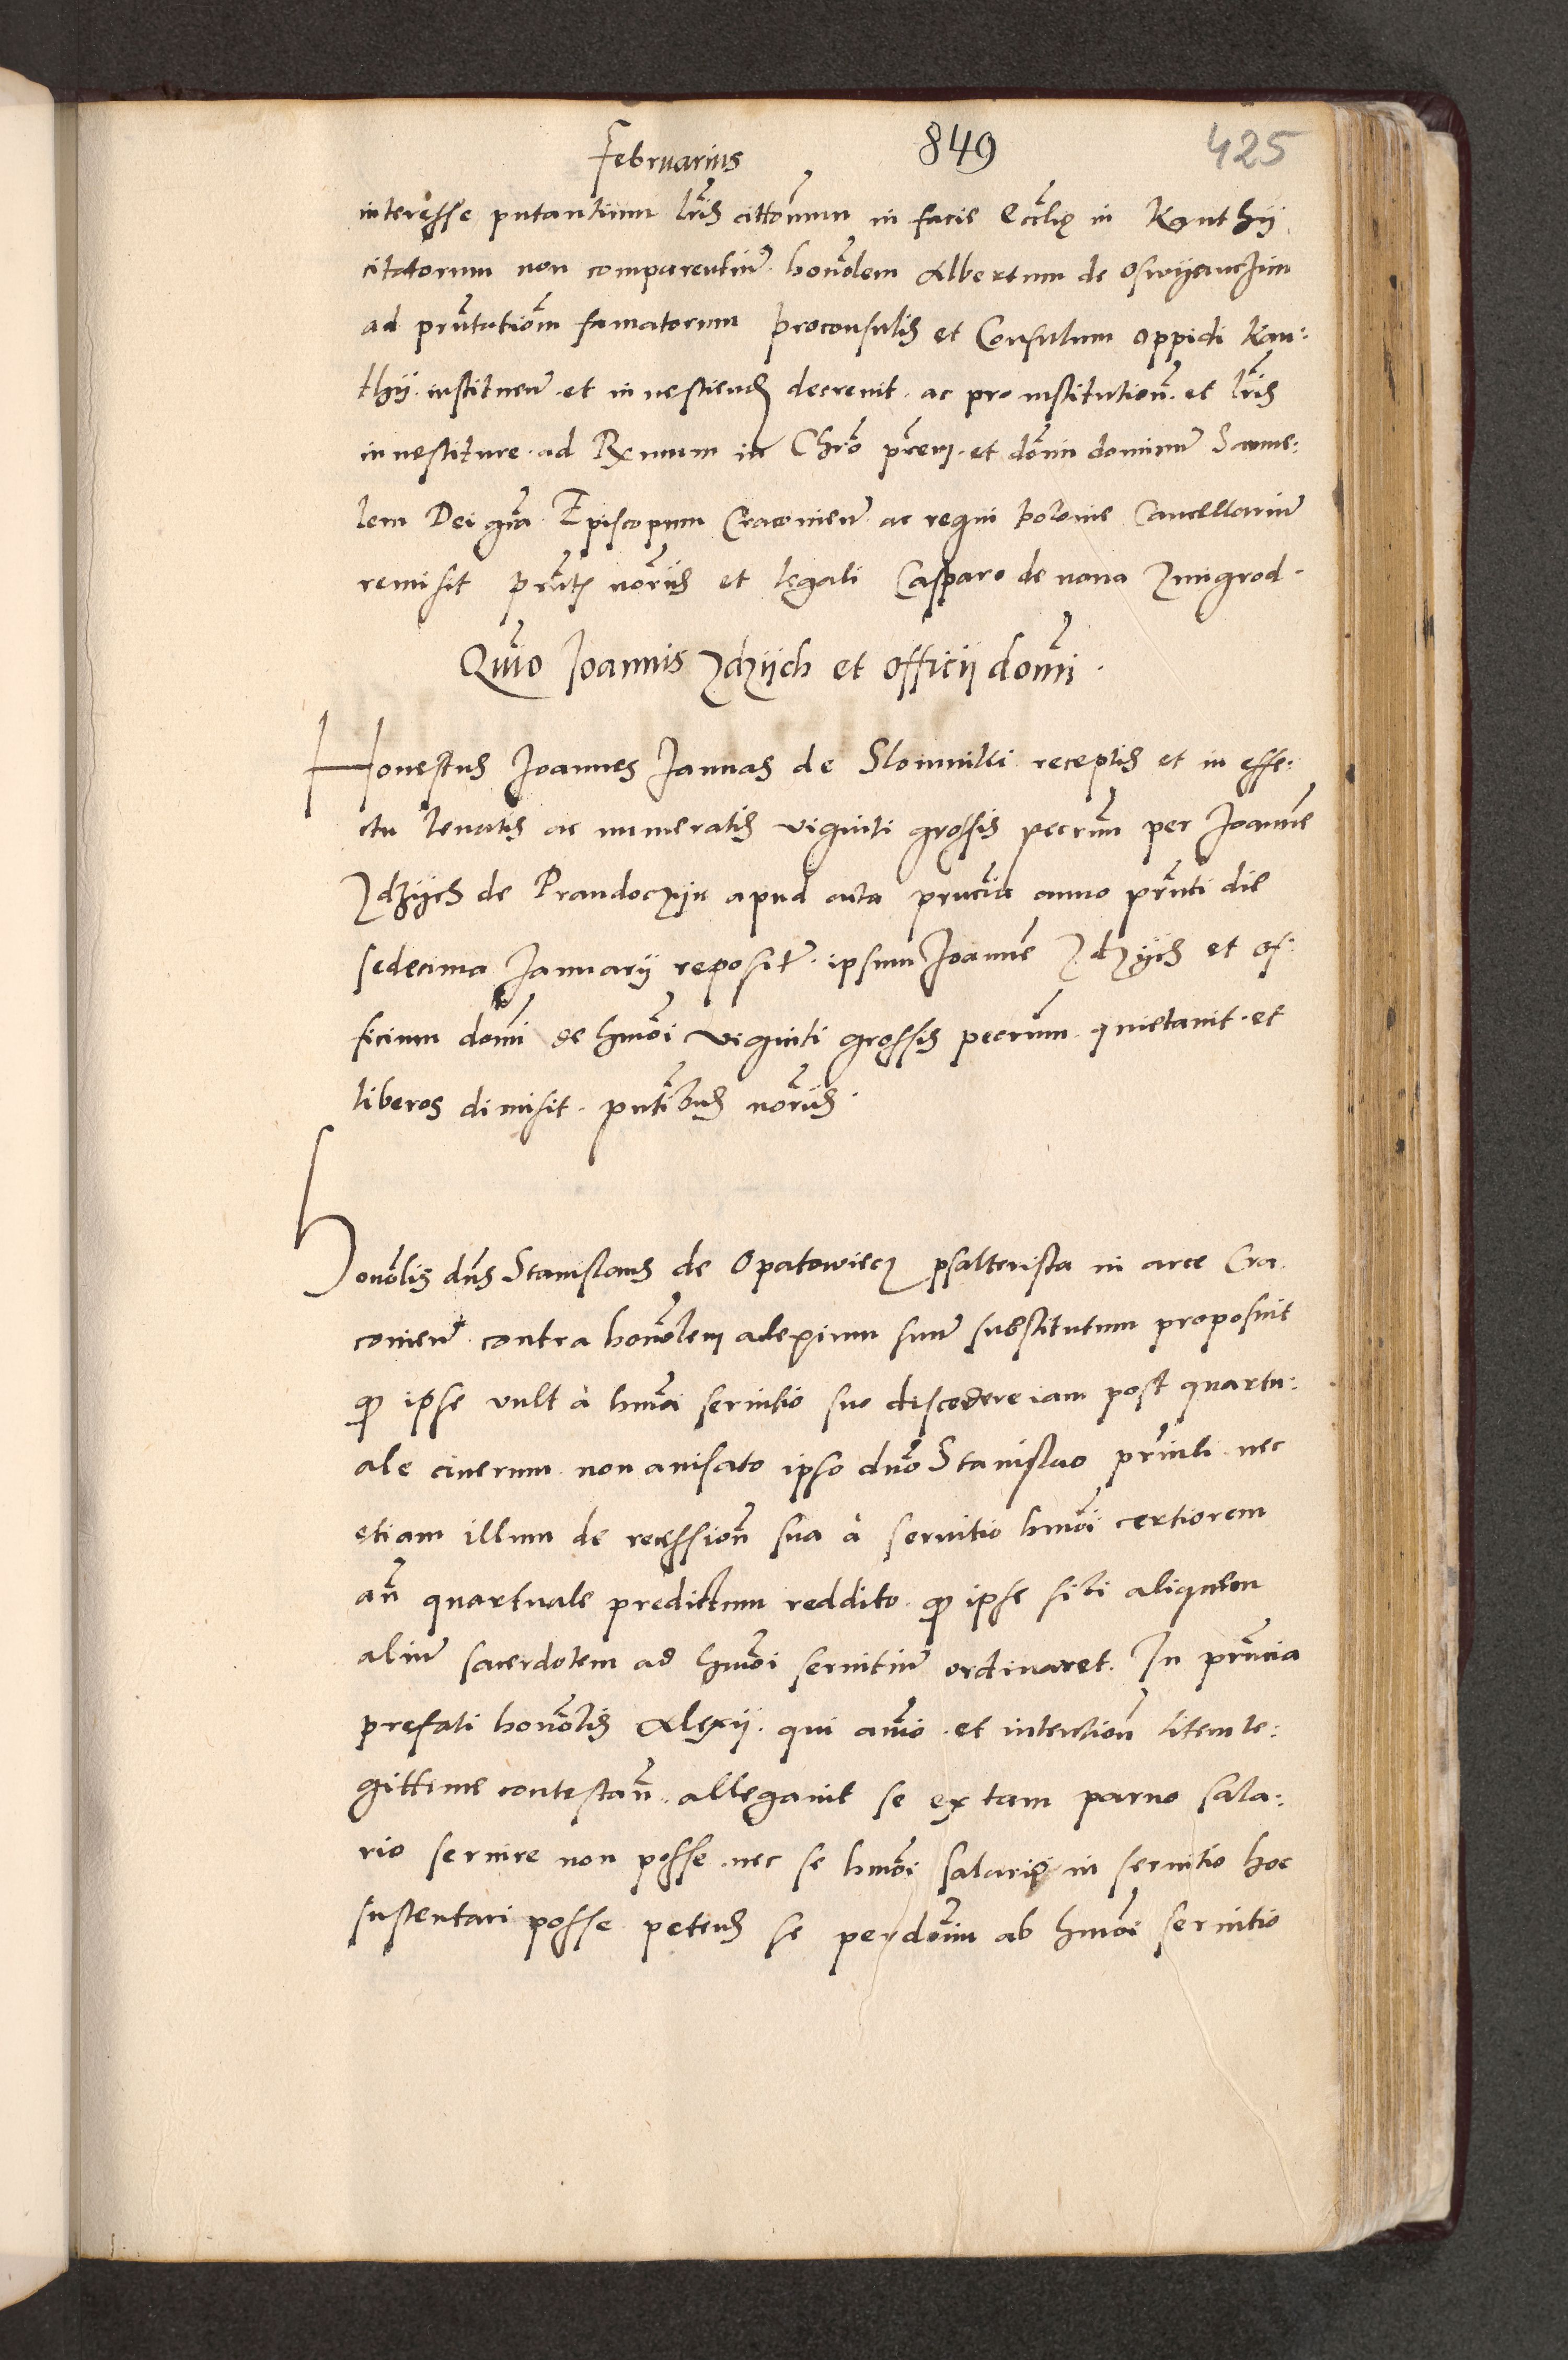 Februarius 849 425
interesse putantium lr̃is cittoñum in facie Eccl̃ię in Kanthij
citatorum non comparentiu͂ honõlem Albertum de Oswyenczim
ad pr̃ntatiom̃ famatorum proconsulis et Consulum oppidi Kan:
thij. instituen͂ et inuestiend decreuit. ac pro institution͂. et lr̃is
inuestiture. ad Rx̃mum in Chr̃o pr̃em. et dom̃ dominu͂ Samue:
lem Dei gr̃a Episcopum Cracouien͂ ac regni polonie Cancellariu͂
remisit pr̃nti nor̃iis et legali Casparo de noua Zmigrod.
Quito Ioannis Zdzijch et officij domĩ.
Honestus Ioannes Iannas de Slomniki receptis et in effe:
ctu leuatis ac numeratis viginti grossis pecun͂ per Ioanne͂
Zdzijch de Prandoczyn apud acta prñcia anno pr̃nti die
sedecima Ianuarij repositis. ipsum Ioanne͂ Zdzijch et of:
ficium domĩ de hmõi viginti grossis pecun͂. quietauit. et
liberos dimisit. pñtibus nor̃iis.
Honõlis dñs Stanislaus de Opatowiecz psalterista in arce Cra:
couien͂ contra honõlem alexium suu͂ substitutum proposuit
q ipse vult à hmõi seruitio suo discedere iam post quartu:
ale cinerum. non auisato ipso dño Stanislao pr̃inli. nec
etiam illum de recession͂ sua à seruitio hmõi certiorem
añ quartuale predictum reddito. q ipse sibi aliquem
aliu͂ sacerdotem ad hmõi seruitiu͂ ordinaret. In prñcia
prefati honõlis Alexij. qui aĩo. et intention͂ litem le:
gittime contestan͂. allegauit se ex tam paruo sala:
rio seruire non posse. nec se hmõi salario in seruitio hoc
sustentari posse petens se per dom̃ ab hmõi seruitio